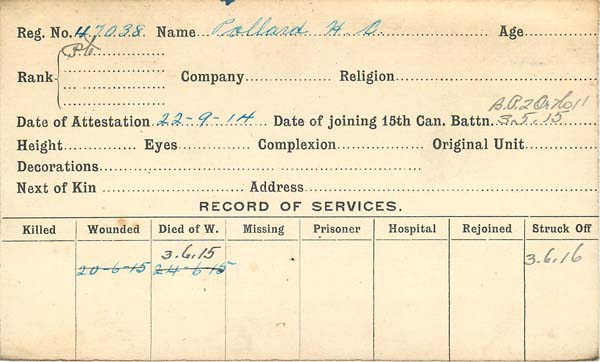 Reg. No. 47038. Name Pollard H. O. Age
Pte
Rank Company Religion
B.P.2 Or 
Date of Attestation 22-9-14 Date of joining 15th Can. Battn. 3.5.15
Height Eyes Complexion Original Unit
Decorations
Next of Kin Address
RECORD OF SERVICES.
Killed Wounded Died of W. Missing Prisoner Hospital Rejoined Struck Off
3.6.15 3.6.16
20-6-15 24-6-15